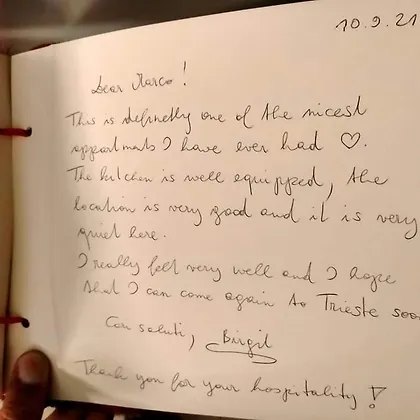 10.9.21
Dear Marco!
This is definetly one of the nicest
appartments I have ever had ♡.
The kitchen is well equipped, the
location is very good and it is very
quiet here.
I really felt very well and I hope
that I can come again to Trieste soon
Cari saluti, Birgit
Thank you for your hospitality!